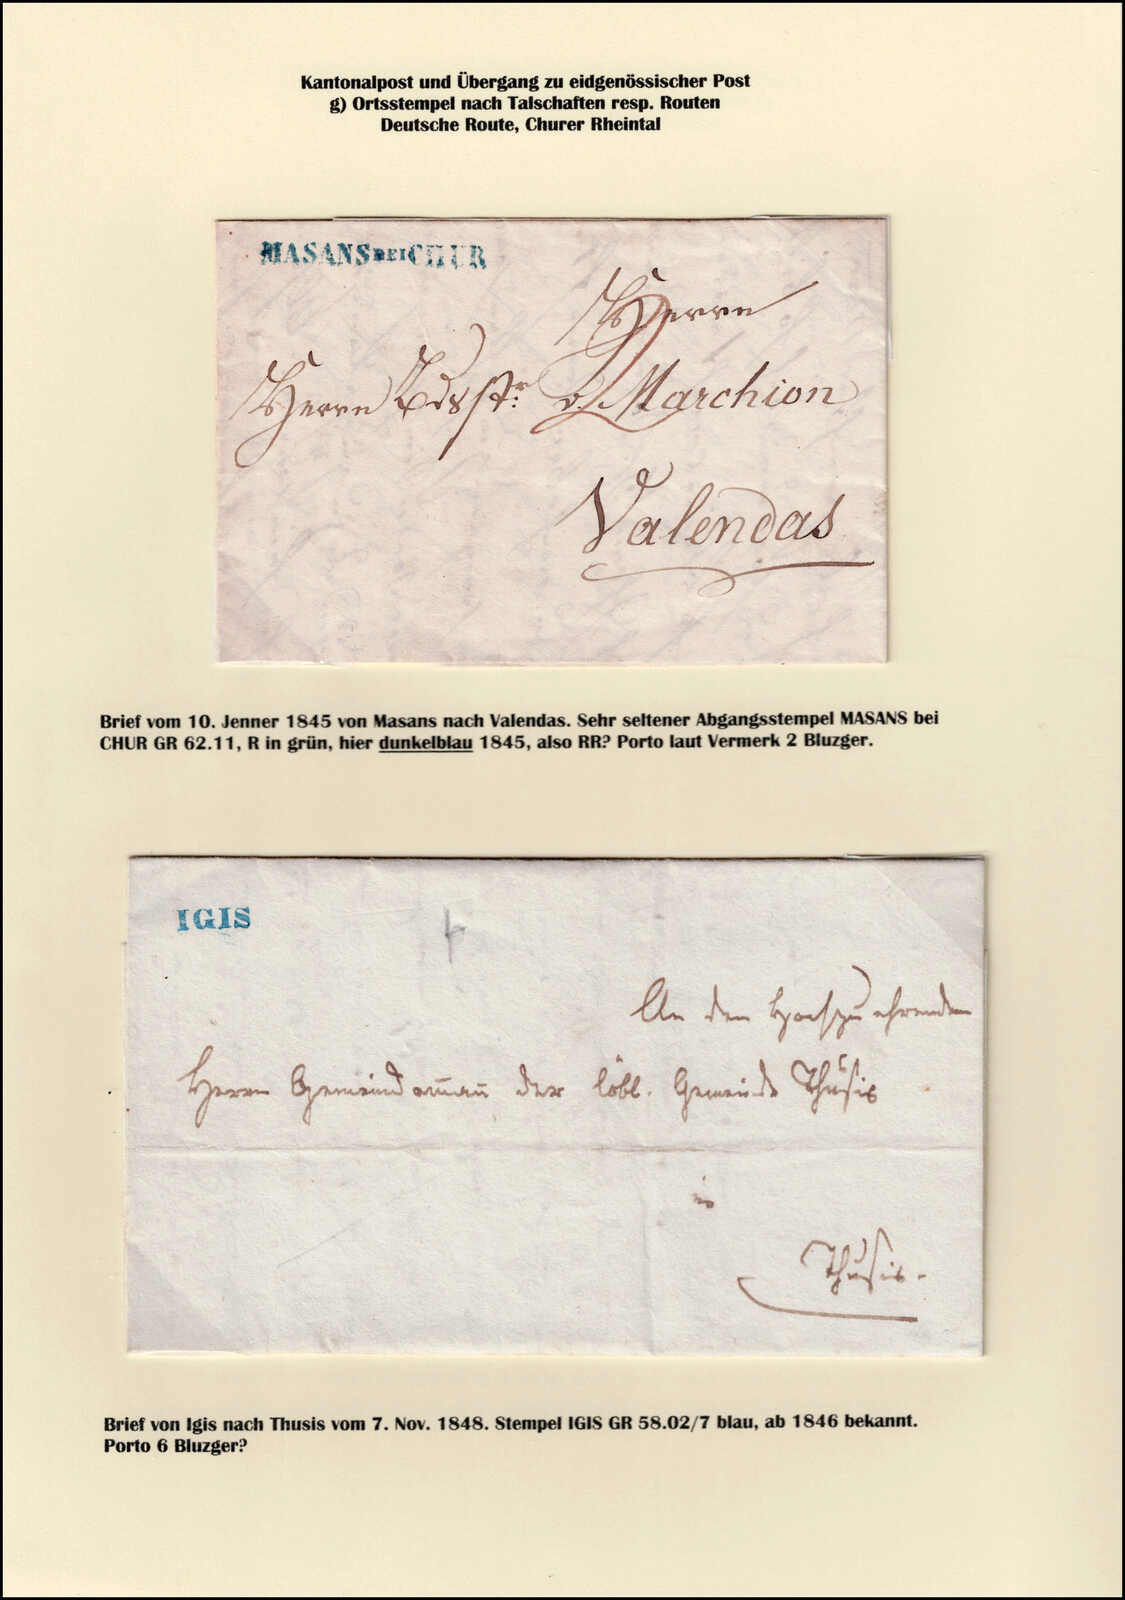 Kantonalpost und Übergang zu eidgenössischer Post
g) Ortsstempel nach Talschaften resp. Routen
Deutsche Route, Churer Rheintal
MASANS BEI CHUR
Herrn
Herrn Bdsstr. v. Marchion
2
Valendas
Brief vom 10. Jenner 1845 von Masans nach Valendas. Sehr seltener Abgangsstempel MASANS bei
CHUR GR 62.11, R in grün, hier dunkelblau 1845, also RR? Porto laut Vermerk 2 Bluzger.
IGIS
An den Hochzuehrenden
Herrn Gemeindamañ der löbl. Gemeinde Thusis
in
Thusis.
Brief von Igis nach Thusis vom 7. Nov. 1848. Stempel IGIS GR 58.02/7 blau, ab 1846 bekannt.
Porto 6 Bluzger?